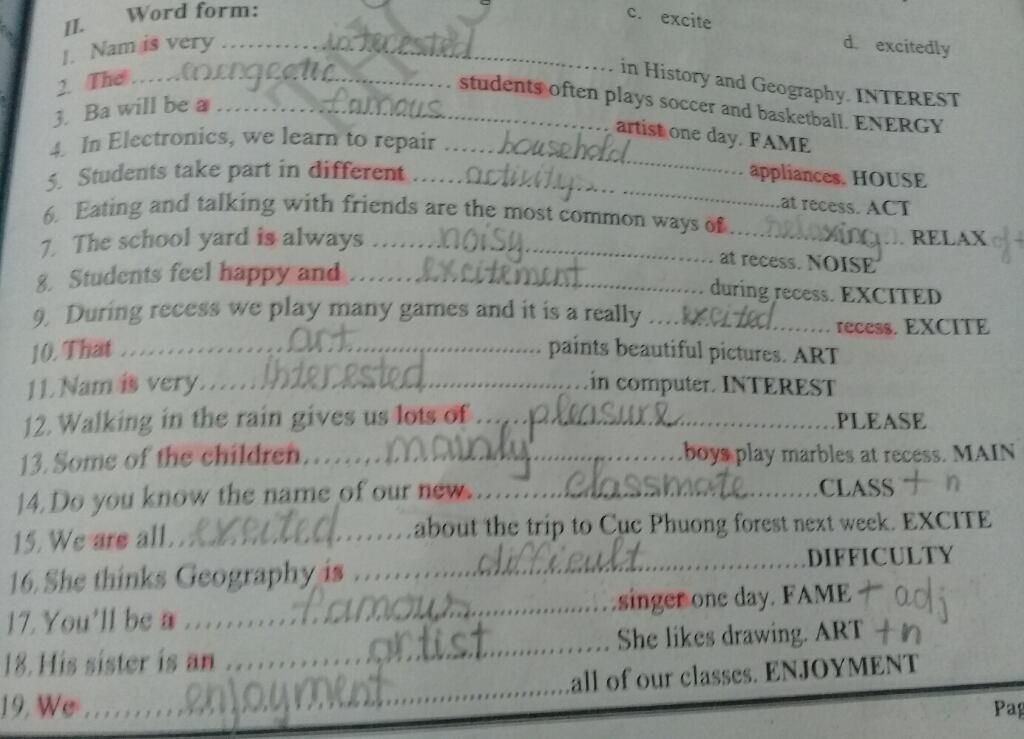 c. excite d. excitedly
II. Word form:
1. Nam is very ..........interested.......... in History and Geography. INTEREST
2. The .......... students often plays soccer and basketball. ENERGY
3. Ba will be a ..........famous.......... artist one day. FAME
4. In Electronics, we learn to repair ......household.......... appliances. HOUSE
5. Students take part in different ......activity.......... at recess. ACT
6. Eating and talking with friends are the most common ways of ......relaxing... RELAX
7. The school yard is always ........noisy.......... at recess. NOISE
8. Students feel happy and ........excitement.......... during recess. EXCITED
9. During recess we play many games and it is a really ....excited........ recess. EXCITE
10. That ..........art.......... paints beautiful pictures. ART
11. Nam is very......interested..........in computer. INTEREST
12. Walking in the rain gives us lots of ......pleasure..........PLEASE
13. Some of the children........mainly..........boys play marbles at recess. MAIN
14. Do you know the name of our new..........classmate..........CLASS + n
15. We are all...excited........about the trip to Cuc Phuong forest next week. EXCITE
16. She thinks Geography is ..........difficult..........DIFFICULTY
17. You'll be a ..........famous..........singer one day. FAME + adj
18. His sister is an ..........artist.......... She likes drawing. ART + n
19. We ..........enjoyment..........all of our classes. ENJOYMENT
Pag